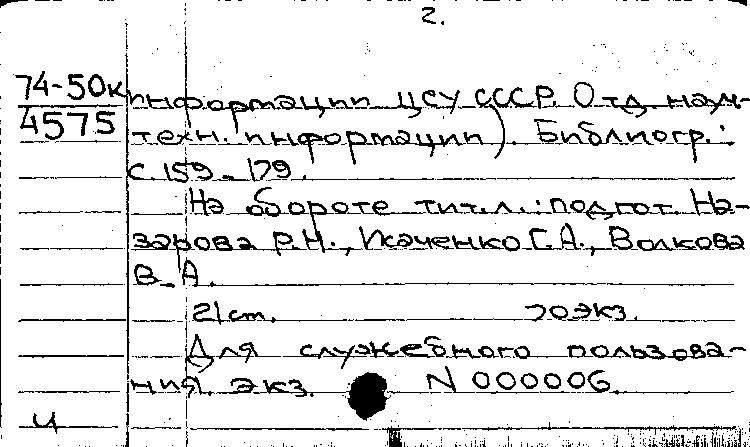 2.
74-50к
4575
информации ЦСУ СССР. Отд. науч-
техн. информации). Библиогр.:
с. 159-179.
На обороте тит. л.: подгот. На-
зарова Р.Н., Исаченко Г.А., Волкова
В.А.
21 cm. 70 экз.
Для служебного пользова-
ния. экз. N 000006.
ч